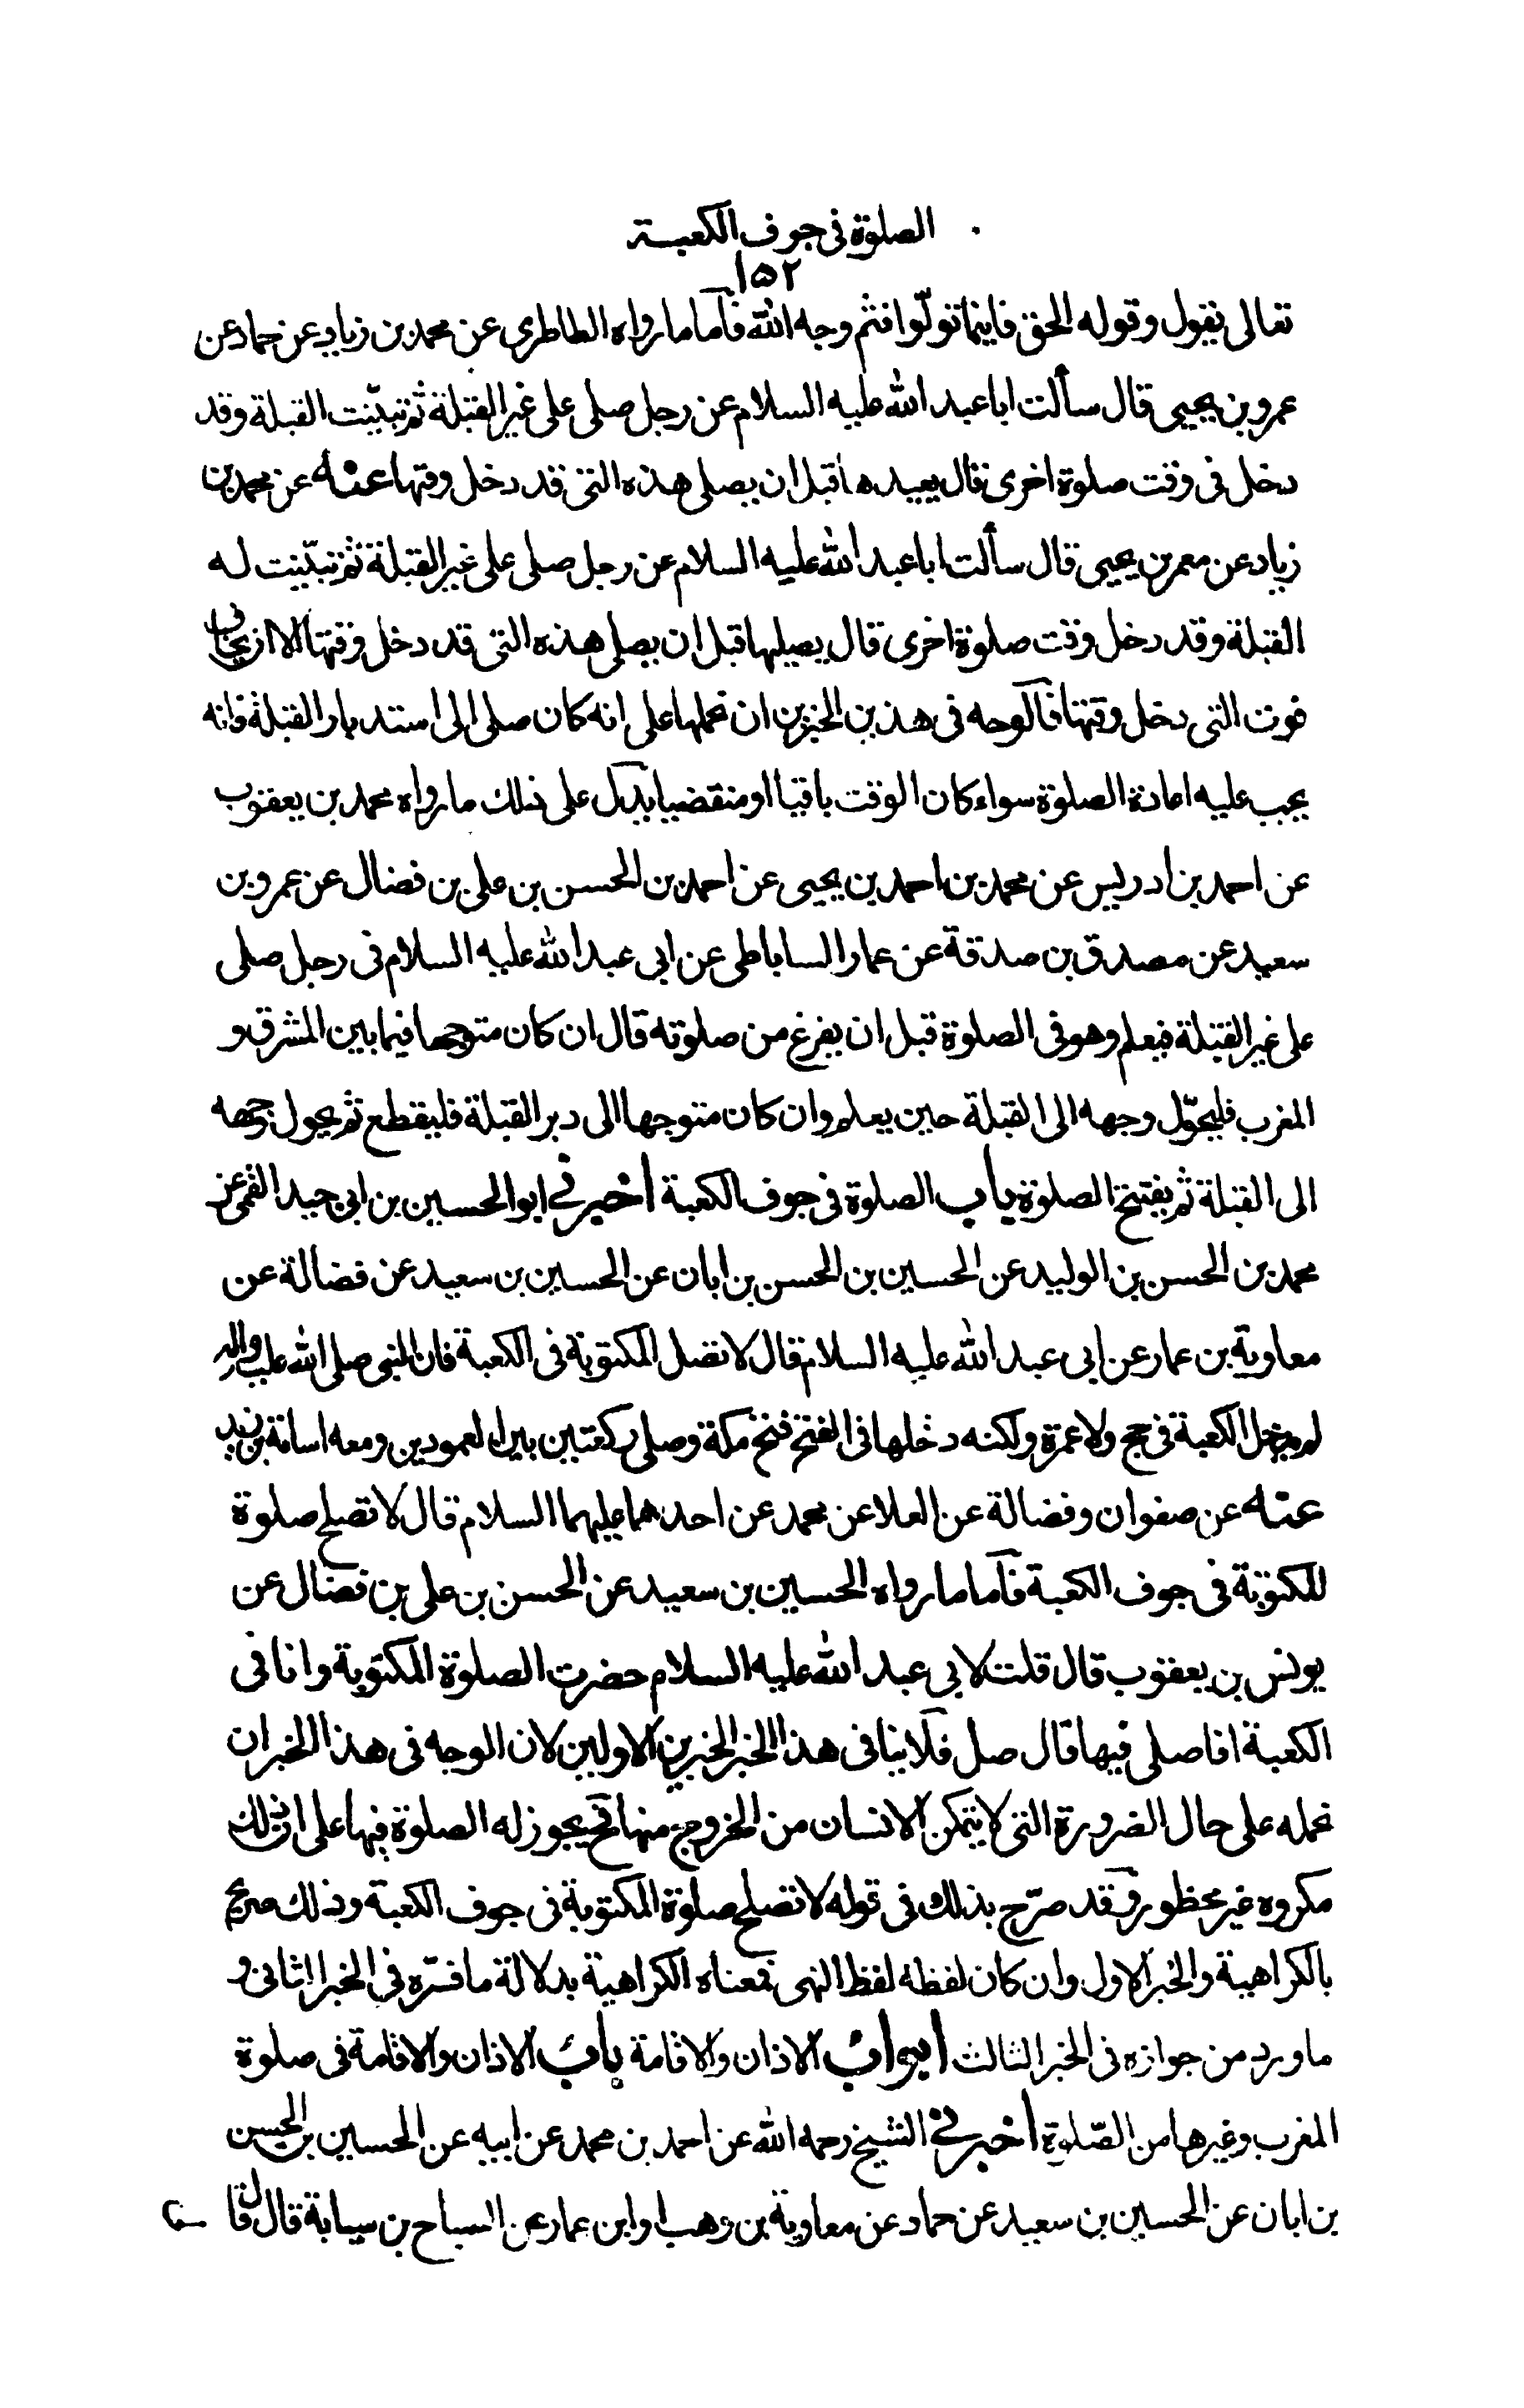 الصلوة فى جوف الكعبة
١٥٢
تعالى يقول وقوله الحق فاينما تولّوا فثم وجه الله فأما ما رواه الطاطرى عن محمد بن زياد عن حماد عن
عمرو بن يحيى قال سألت ابا عبد الله عليه السلام عن رجل صلى على غير القبلة ثم تبيّنت القبلة وقد
دخل فى وقت صلوة اخرى قال يعيدها قبل ان يصلى هذه التى قد دخل وقتها عنه عن محمد بن
زياد عن معمر بن يحيى قال سألت ابا عبد الله عليه السلام عن رجل صلى على غير القبلة ثم تبيّنت له
القبلة وقد دخل وقت صلوة اخرى قال يصليها قبل ان يصلى هذه التى قد دخل وقتها الا ان يخاف
فوت التى دخل وقتها فالوجه فى هذين الخبرين ان نحملها على انه كان صلى الى استدبار القبلة فانه
يجب عليه اعادة الصلوة سواء كان الوقت باقيا او منقضيا يدل على ذلك ما رواه محمد بن يعقوب
عن احمد بن ادريس عن محمد بن احمد بن يحيى عن احمد بن الحسن بن على بن فضال عن عمرو بن
سعيد عن مصدق بن صدقة عن عمار الساباطى عن ابى عبد الله عليه السلام فى رجل صلى
على غير القبلة فيعلم وهو فى الصلوة قبل ان يفرغ من صلوته قال ان كان متوجها فيما بين المشرق و
المغرب فليحوّل وجهه الى القبلة حين يعلم وان كان متوجها الى دبر القبلة فليقطع ثم يحول وجهه
الى القبلة ثم يفتتح الصلوة باب الصلوة فى جوف الكعبة أخبرنى ابو الحسين بن ابى جيد القمى عن
محمد بن الحسن بن الوليد عن الحسين بن الحسن بن ابان عن الحسين بن سعيد عن فضالة عن
معاوية بن عمار عن ابى عبد الله عليه السلام قال لا تصل المكتوبة فى الكعبة فان النبى صلى الله عليه واله
لم يدخل الكعبة فى حج ولا عمرة ولكنه دخلها فى الفتح فتح مكة وصلى ركعتين بين العمودين ومعه اسامة بن زيد
عنه عن صفوان وفضالة عن العلا عن محمد عن احدهما عليهما السلام قال لا تصلح صلوة
المكتوبة فى جوف الكعبة فأما ما رواه الحسين بن سعيد عن الحسن بن على بن فضال عن
يونس بن يعقوب قال قلت لابى عبد الله عليه السلام حضرت الصلوة المكتوبة وانا فى
الكعبة افاصلى فيها قال صل فلا ينافى هذا الخبر الخبرين الاولين لان الوجه فى هذا الخبر ان
نحمله على حال الضرورة التى لا يتمكن الانسان من الخروج منها فح يجوز له الصلوة فيها على ان ذلك
مكروه غير محظور وقد صرّح بذلك فى قوله لا تصلح صلوة المكتوبة فى جوف الكعبة وذلك صريح
بالكراهية والخبر الاول وان كان لفظه لفظ النهى فمعناه الكراهية بدلالة ما فسّره فى الخبر الثانى و
ما ورد من جوازه فى الخبر الثالث ابواب الاذان والاقامة باب الاذان والاقامة فى صلوة
المغرب وغيرها من الصّلوة أخبرنى الشيخ رحمه الله عن احمد بن محمد عن ابيه عن الحسين بن الحسن
بن ابان عن الحسين بن سعيد عن حماد عن معاوية بن وهب او ابن عمار عن الصباح بن سيابة قال قال